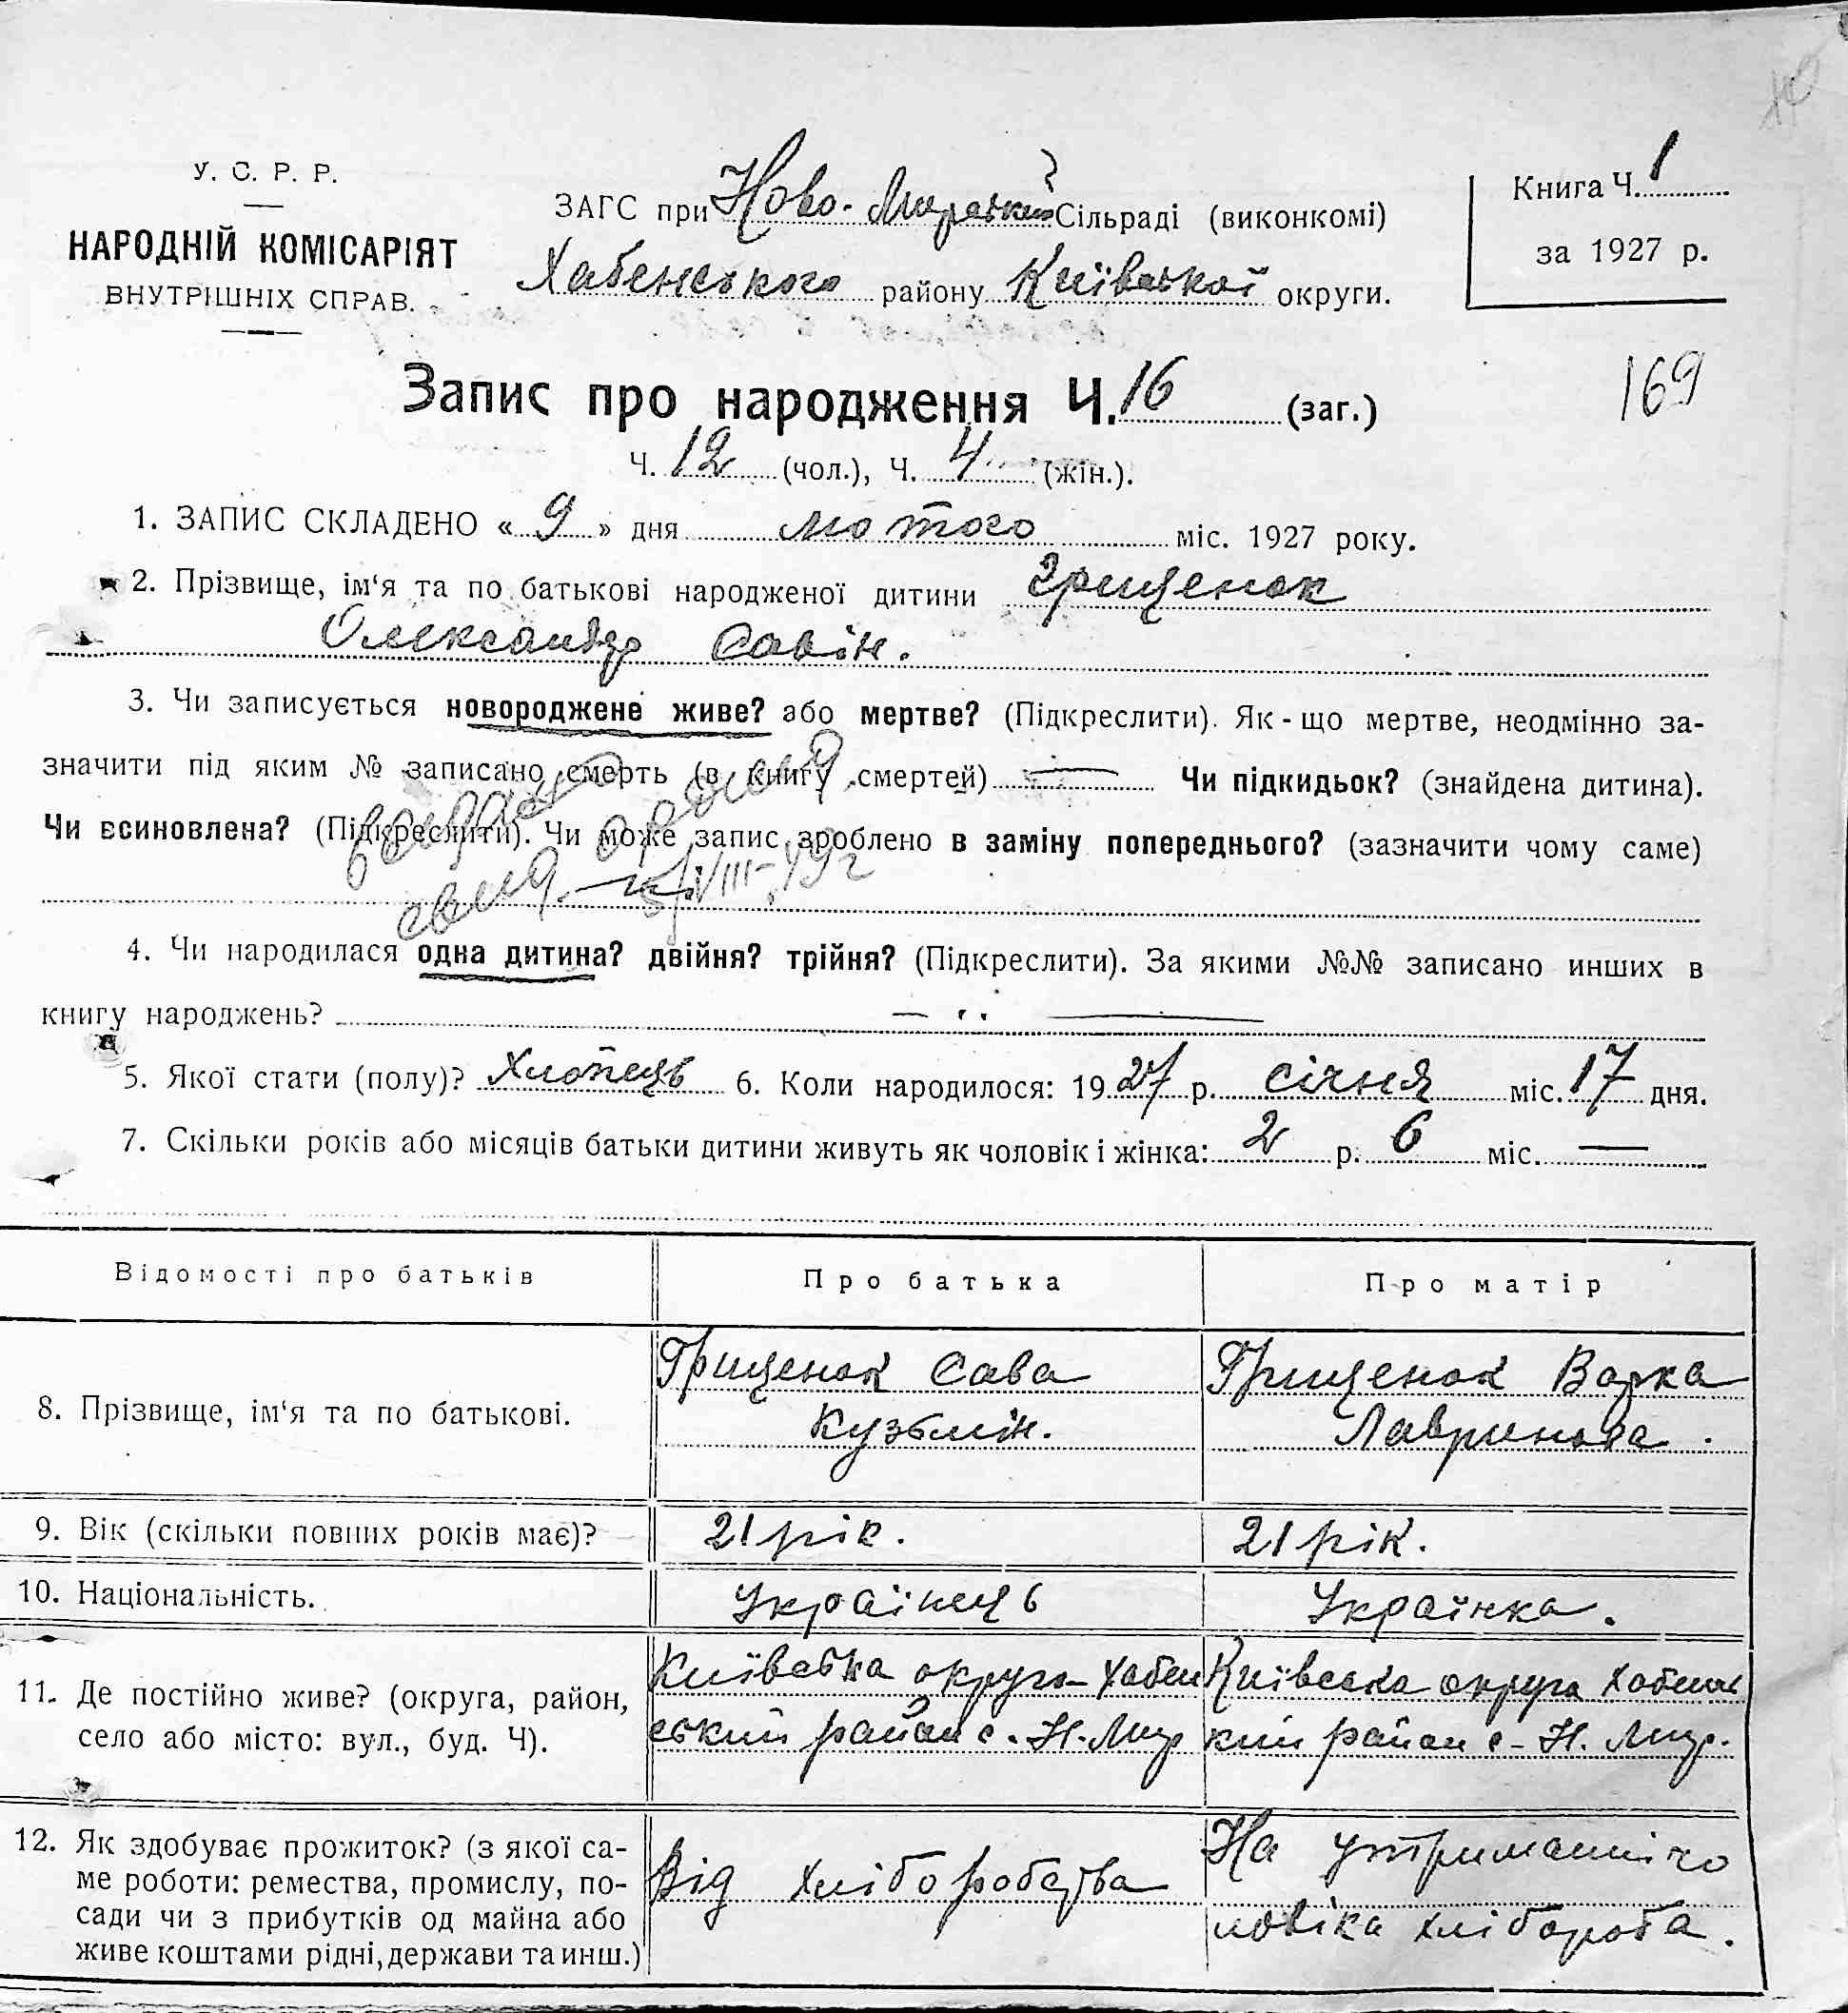 У. С. Р. Р.
НАРОДНІЙ КОМІСАРІЯТ
ВНУТРІШНІХ СПРАВ.
ЗАГС при Ново-Мирській Сільраді (виконкомі)
Хабенського району Київської округи.
Книга Ч. 1
за 1927 р.
Запис про народження Ч. 16 (заг.)
169
Ч. 12 (чол.), Ч. 4 (жін.).
1. ЗАПИС СКЛАДЕНО « 9 » дня лютого міс. 1927 року.
2. Прізвище, ім‘я та по батькові народженої дитини Грищенок
Олександр Савін.
3. Чи записується новороджене живе? або мертве? (Підкреслити). Як-що мертве, неодмінно за-
значити під яким № записано смерть (в книгу смертей) — Чи підкидьок? (знайдена дитина).
Чи всиновлена? (Підкреслити). Чи може запис зроблено в заміну попереднього? (зазначити чому саме)
свид. 5/VIII-49 г
4. Чи народилася одна дитина? двійня? трійня? (Підкреслити). За якими №№ записано инших в
книгу народжень? —
5. Якої стати (полу)? Хлопець 6. Коли народилося: 1927 р. січня міс. 17 дня.
7. Скільки років або місяців батьки дитини живуть як чоловік і жінка: 2 р. 6 міс. —
Відомості про батьків Про батька Про матір
8. Прізвище, ім‘я та по батькові. Грищенок Сава Грищенок Варка
Кузьмін. Лавринова.
9. Вік (скільки повних років має)? 21 рік. 21 рік.
10. Національність. Українець Українка.
11. Де постійно живе? (округа, район, село або місто: вул., буд. Ч). Київська округа Хабен Київська округа Хабенс
ський район с. Н. Мир кий район с- Н. Мир.
12. Як здобуває прожиток? (з якої са-
ме роботи: ремества, промислу, по-
сади чи з прибутків од майна або
живе коштами рідні, держави та инш.)
Від хліборобства
На утриманні чо
ловіка хлібороба.